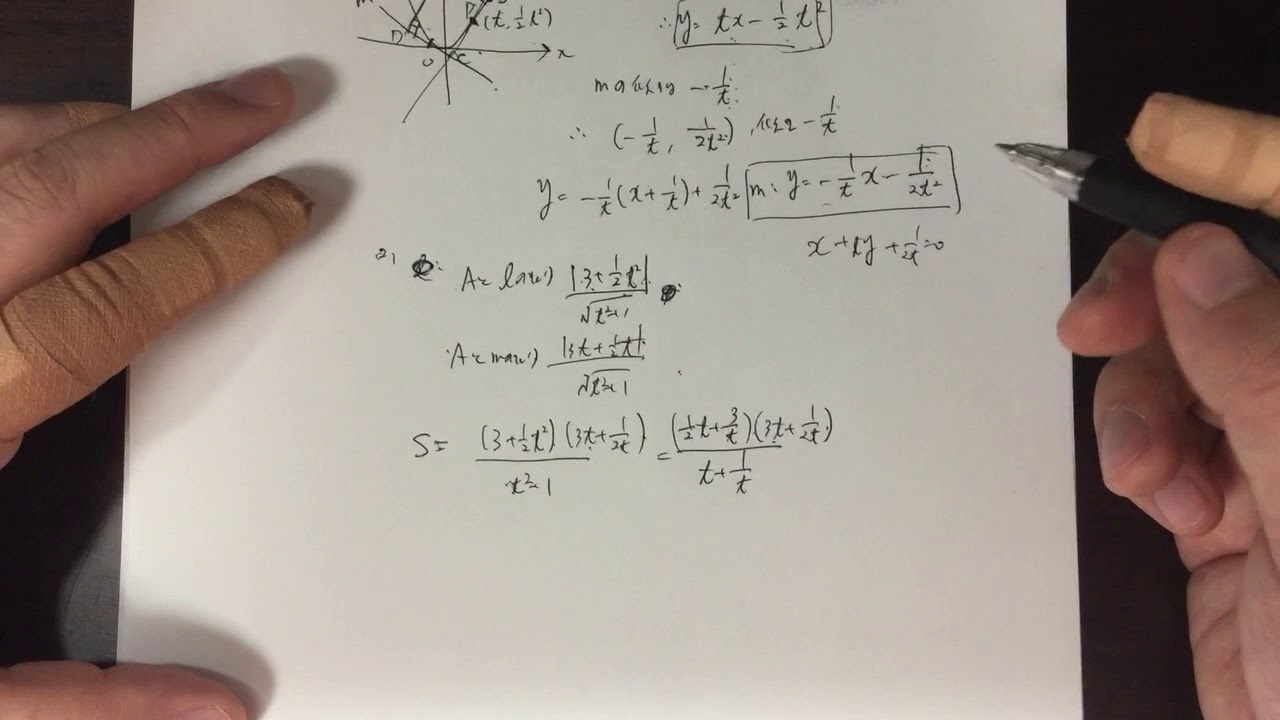 m
D P (t, 1/2 t²)
O C x
∴ y = tx - 1/2 t²
mの傾きは -1/t
∴ (-1/t, 1/2t²), 傾き -1/t
y = -1/t (x + 1/t) + 1/2t² m: y = -1/t x - 1/2t²
x + ty + 1/2t = 0
(2)
Aとlの距離 |3 + 1/2 t²| / √t²+1
Aとmの距離 |3t + 1/2t| / √t²+1
S = (3 + 1/2 t²)(3t + 1/2t) / t²+1 = (1/2 t + 3/t)(3t + 1/2t) / t + 1/t